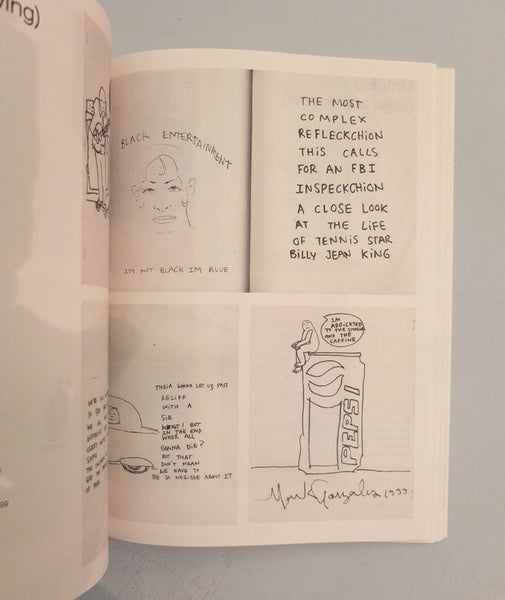 ying)
BLACK ENTERTAINMENT
IM NOT BLACK IM BLUE
THE MOST
COMPLEX
REFLECKCHION
THIS CALLS
FOR AN FBI
INSPECKCHION
A CLOSE LOOK
AT THE LIFE
OF TENNIS STAR
BILLY JEAN KING
THEIR GONNA LET US PASS
RELIEF
WITH A
SIE
BUT
IN THE END
WHER ALL
GONNA DIE?
BUT THAT
DON'T MEAN
WE HAVE TO
BE SO NEGITIVE ABOUT IT
IM
ADDICKTED
TO THE SUGAR
AND THE
CAFFINE
PEPSI
Mark Gonzales 1999
99